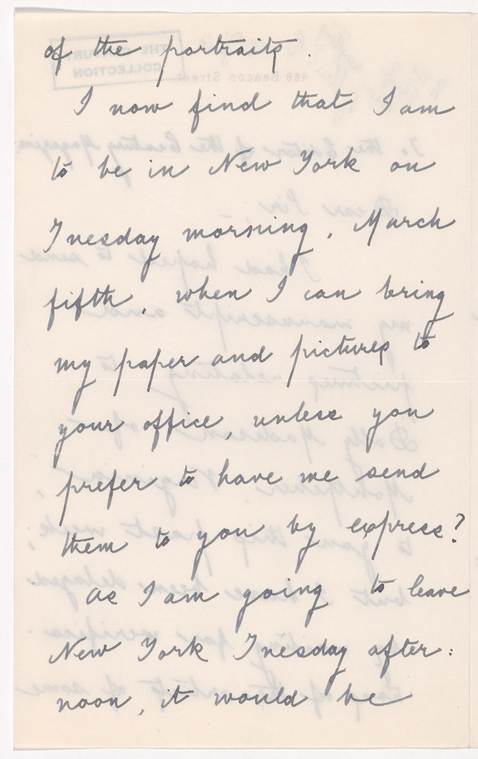 of the portraits.
I now find that I am
to be in New York on
Tuesday morning, March
fifth, when I can bring
my paper and pictures to
your office, unless you
prefer to have me send
them to you by express?
As I am going to leave
New York Tuesday after:
noon, it would be